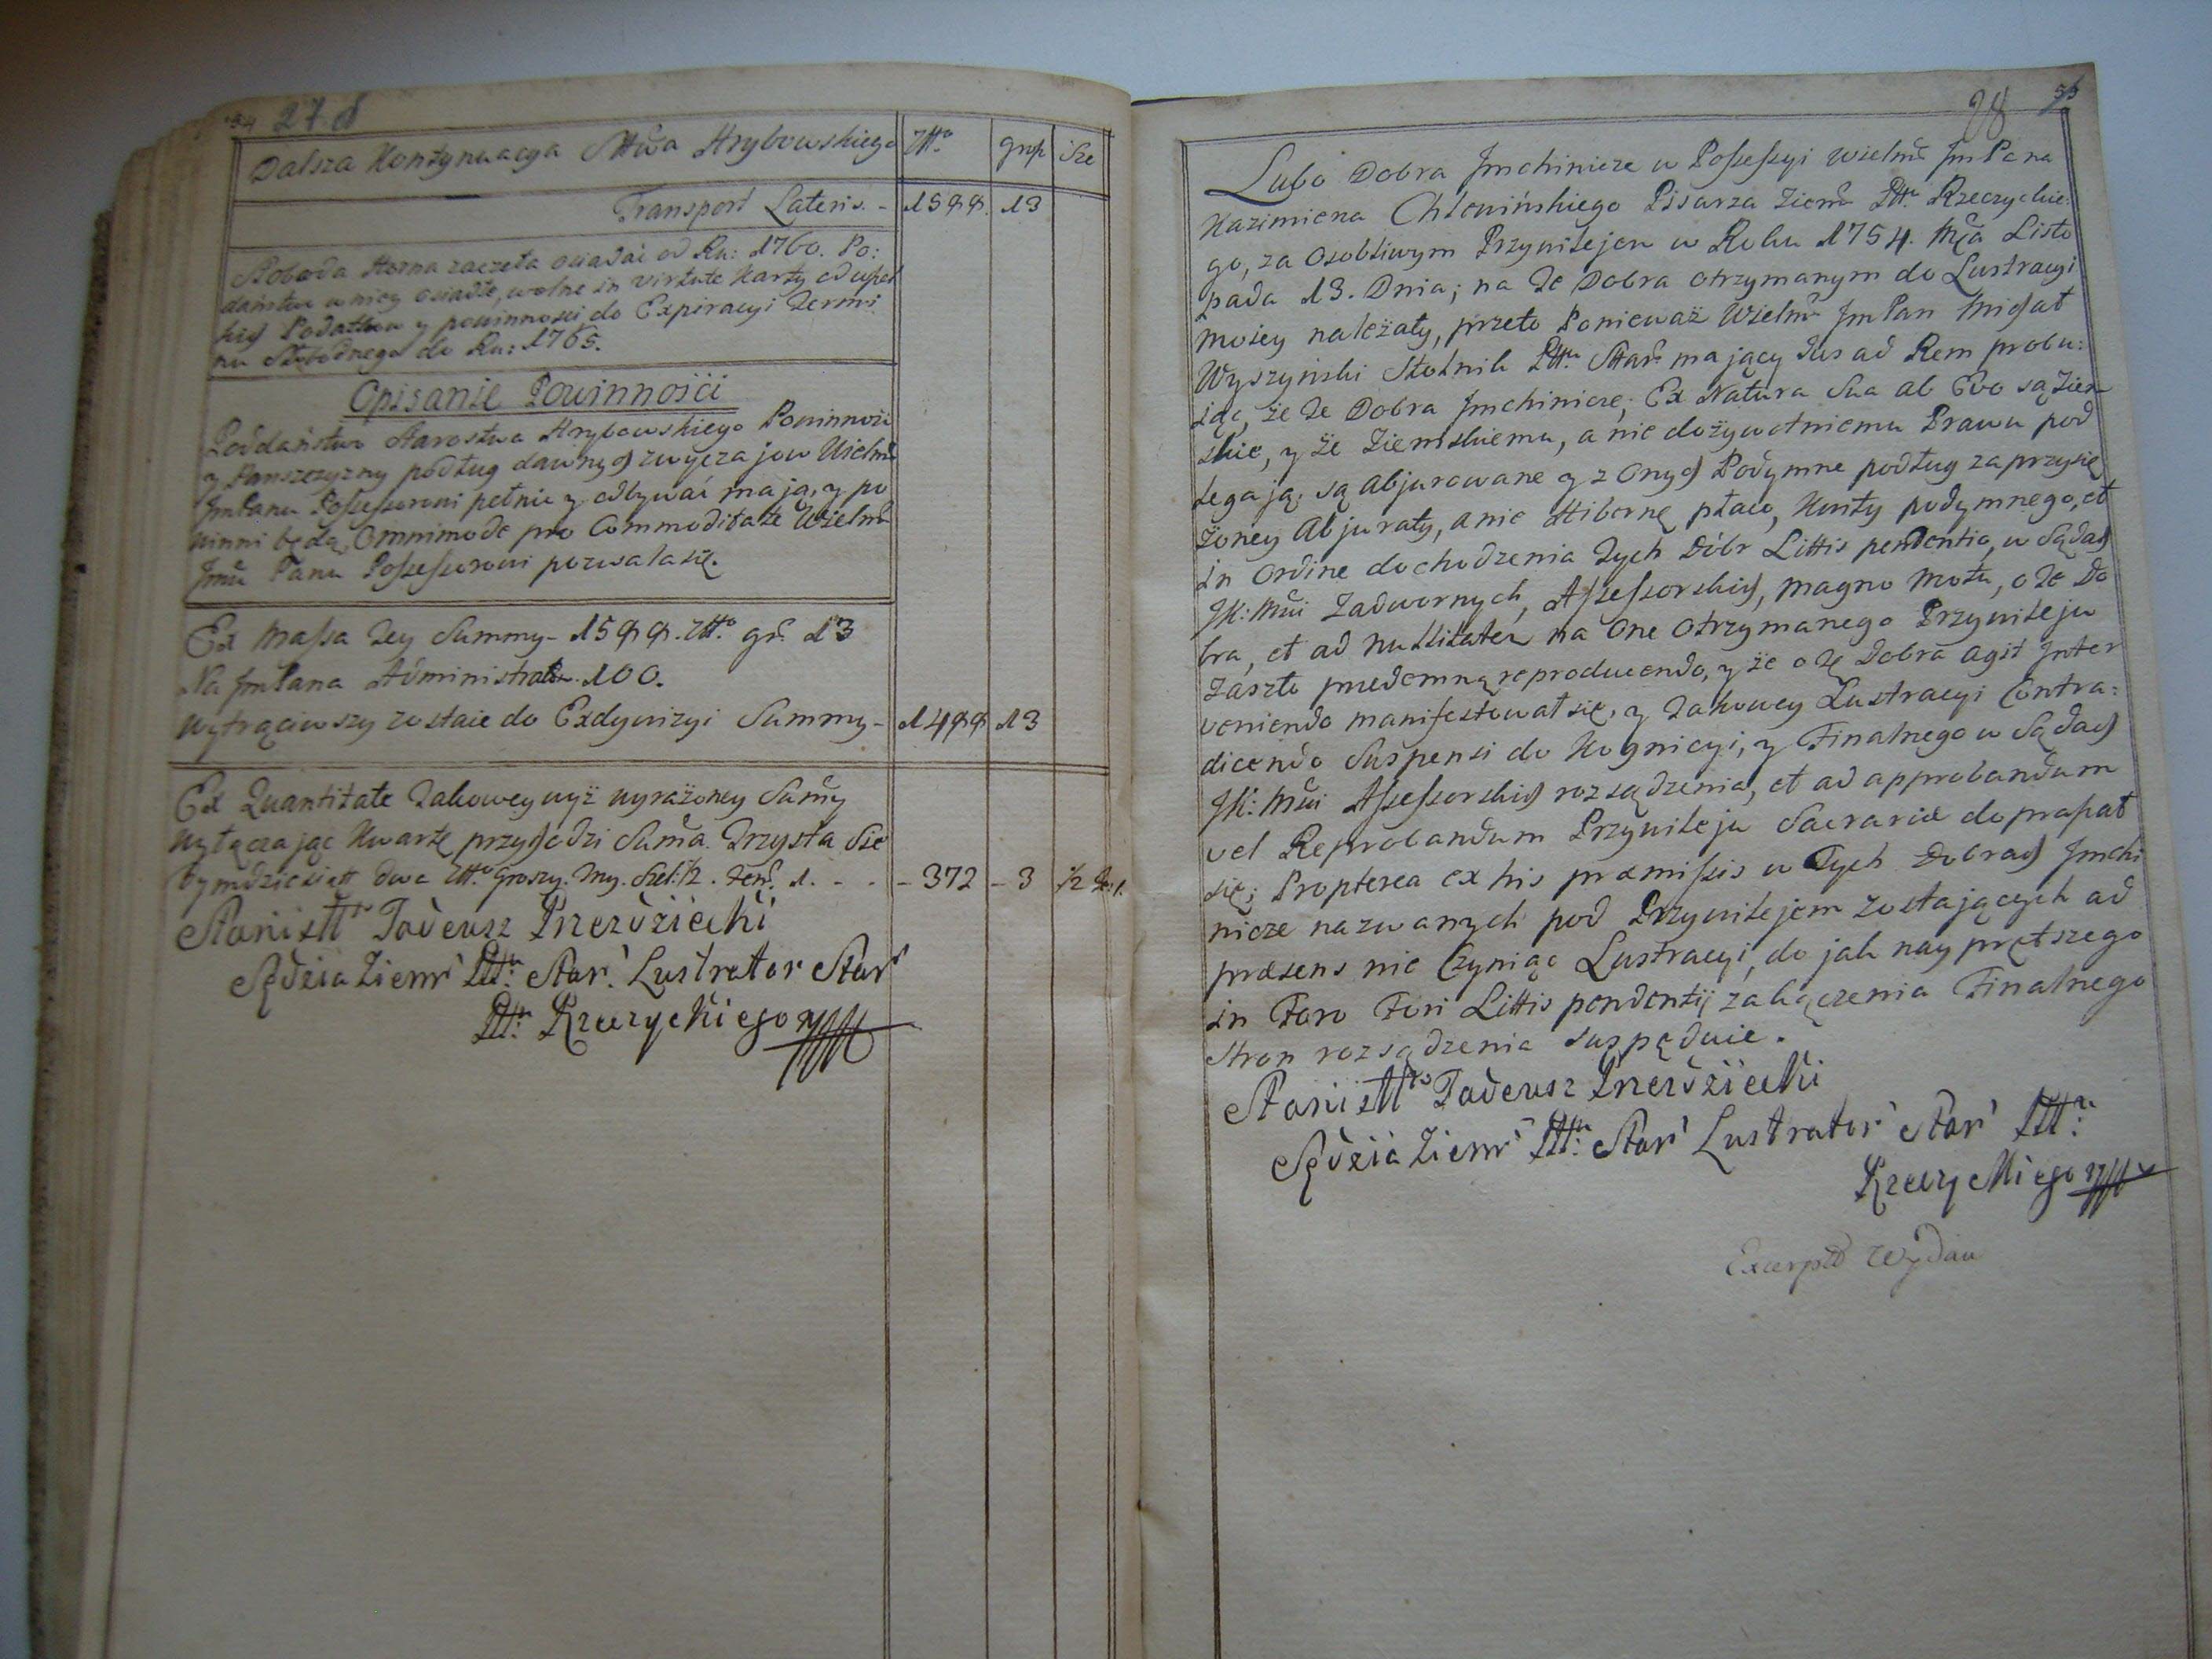 54 27. d
Dalsza Kontynuacya Sttwa Hrybowskiego Ztto grop Sze
Transport Lateris. - 1588. 13
Słoboda Horna zaczeta osiadać od Ru: 1760. Po:
daństwo w niey osiadłe, wolne in virtute Karty od wszel
kich Podatkow y powinnosci do Expiracyi Termi
nu Słobodnego do Ru: 1765.
Opisanie Powinności
Poddaństwo Starostwa Hrybowskiego Powinności
y Panszczyzny podług dawnych zwyczajow Wielmo
JmPanu Possessorowi pełnić y odbywać mają, y po
winni będą, Omnimode pro Commoditate Wielmo
Jmci Panu Possessorowi pozwala się.
Ex Massa tey Summy - 1588. Ztto gr. 13
Na JmPana Administratora. 100.
Wytrąciwszy zostaie do Exdywizyi Summy - 1488 13
Ex Quantitate takowey wyż wyrażoney Sumy
Wyłączając Kwartę przychodzi Suma. Trzysta Sie
dymdziesiątt dwa Ztto Groszy. Trzy. Szel: 1/2. den. 1. - - - 372 - 3 1/2 de: 1.
Stanisłł Tadeusz Przezdziecki
Sędzia Ziem Ptu: Star. Lustrator Star
Ptu: Rzeczyckiego
28 55
Lubo Dobra Jmchinicze w Possessyi Wielmo JmPana
Kazimierza Chlewińskiego Pisarza Ziem Pttu Rzeczyckie:
go, za osobliwym Przywilejem w Roku 1754. Mca Listo
pada 13. Dnia; na te Dobra otrzymanym do Lustracyi
moiey należały, przeto Ponieważ Wielmo JmPan Michał
Wyszyński Stolnik Pttu Star mający Jus ad Rem probu:
jąc, że te Dobra Jmchinicze, Ex Natura Sua ab Evo są Ziem
skie, y że Ziemskiemu, a nie dożywotniemu Prawu pod
legają, są abjurowane y z onych Podymne podług zaprzysię
żoney Abjuraty, a nie Hibernę płaco, Kwity podymnego, et
in Ordine dochodzenia tych Dóbr Littis pendentia, w Sądach
JK: Mci Zadwornych, Assessorskich, magno Motu, o te Do
bra, et ad nullitatem na One otrzymanego Przywileju
Zaszłe przedemną reproducendo, y że o te Dobra agit Inter
veniendo manifestował się, y takowey Lustracyi Contra:
dicendo Suspensi do Kognicyi, y Finalnego w Sądach
JK: Mci Assessorskich rozsądzenia, et ad approbandum
vel Reprobandum Przywileju Sacrariae dopraszał
się; Propterea ex his præmissis w Tych Dobrach Jmchi
nicze nazwanych pod Przywilejem zostających ad
præsens nie Czyniąc Lustracyi, do jak nayprętszego
in Foro Fori Littis pendentij zakączenia Finalnego
stron rozsądzenia suspęduie.
Stanisłł Tadeusz Przezdziecki
Sędzia Ziem Pttu: Star Lustrator Star Pttu:
Rzeczyckiego
Excerptt Wydan